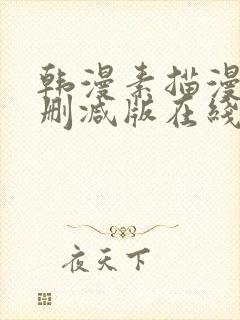 韩漫素描漫
删减版在綫
夜天下